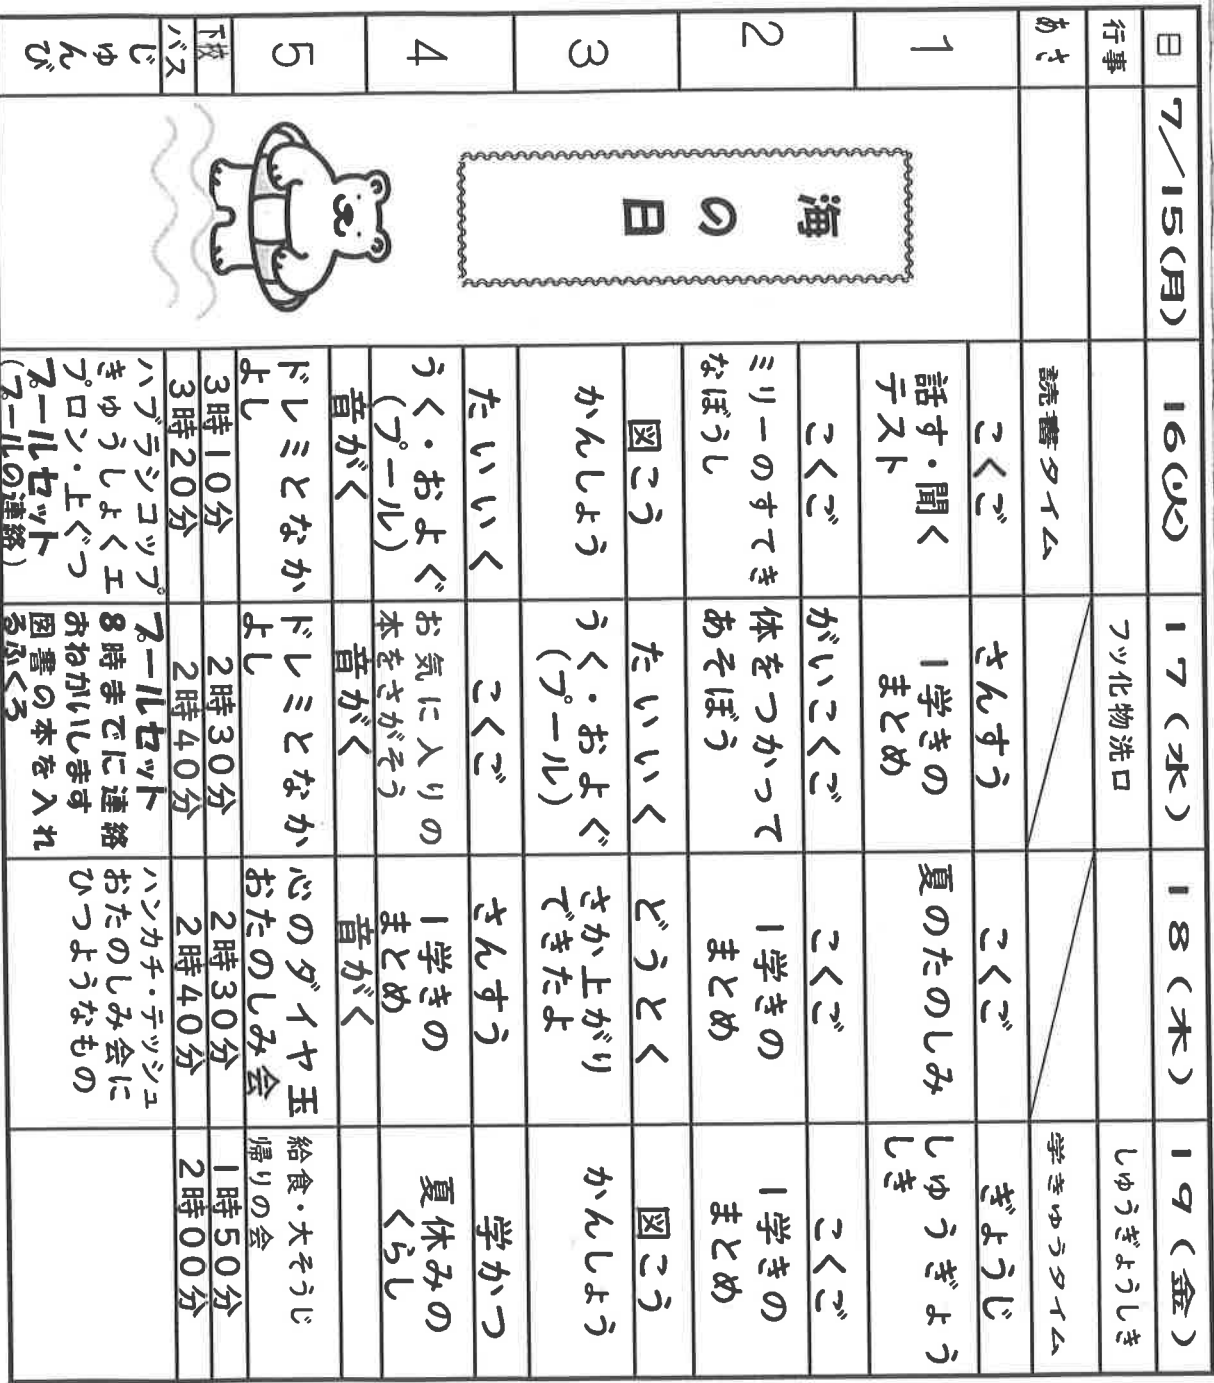 日
7/15(月)
16(火)
17(水)
18(木)
19(金)
行事
フッ化物洗口
しゅうぎょうしき
あさ
読書タイム
学きゅうタイム
海の日
1
こくご
話す・聞く
テスト
さんすう
1学きの
まとめ
こくご
夏のたのしみ
ぎょうじ
しゅうぎょう
しき
2
こくご
ミリーのすてき
なぼうし
がいこくご
体をつかって
あそぼう
こくご
1学きの
まとめ
こくご
1学きの
まとめ
3
図こう
かんしょう
たいいく
うく・およぐ
(プール)
どうとく
さか上がり
できたよ
図こう
かんしょう
4
たいいく
うく・およぐ
(プール)
こくご
お気に入りの
本をさがそう
さんすう
1学きの
まとめ
学かつ
夏休みの
くらし
5
音がく
ドレミとなか
よし
音がく
ドレミとなか
よし
音がく
心のダイヤ玉
おたのしみ会
給食・大そうじ
帰りの会
下校
3時10分
2時30分
2時30分
1時50分
バス
3時20分
2時40分
2時40分
2時00分
じゅんび
ハブラシコップ
きゅうしょくエ
プロン・上ぐつ
プールセット
(プールの連絡)
プールセット
8時までに連絡
おねがいします
図書の本を入れ
るふくろ
ハンカチ・テッシュ
おたのしみ会に
ひつようなもの